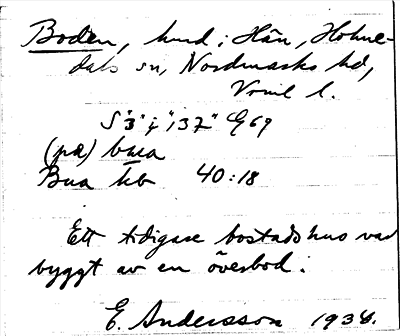 Boden, hmd i Hån, Holme-
dals sn, Nordmarks hd,
Vrml l.
S "3" i "137" G69
(på) bua
Bua kb 40:18
Ett tidigare bostadshus var
byggt av en överbod.
E. Andersson 1934.